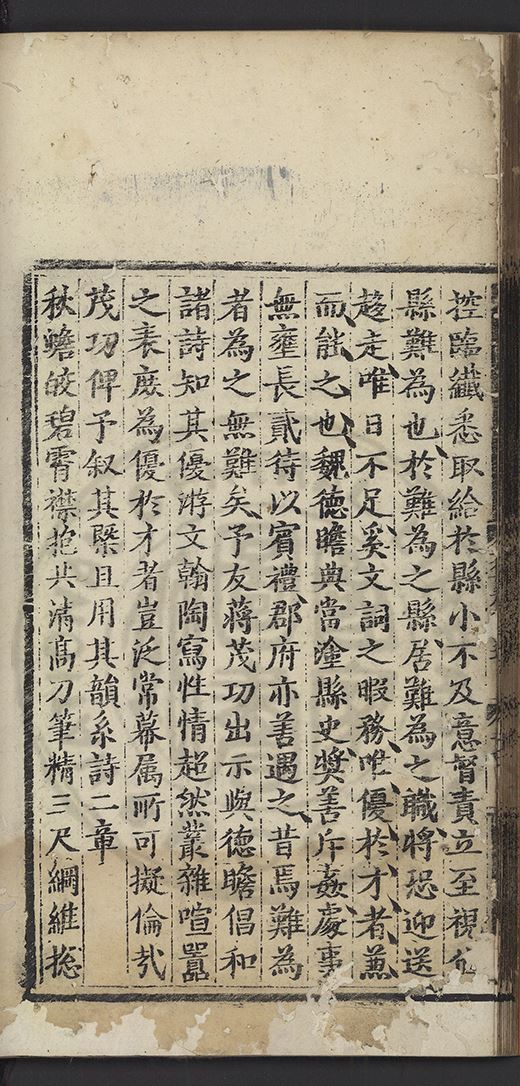 控臨纖悉取給於縣小不及意督責立至視他
縣難為也於難為之縣居難為之職將恐迎送
趍走唯日不足奚文詞之暇務唯優於才者兼
而能之也魏德瞻典當塗縣史奬善斥姦處事
無壅長貳待以賓禮郡府亦善遇之昔焉難為
者為之無難矣予友蔣茂功出示與德瞻倡和
諸詩知其優游文翰陶寫性情超然叢雜喧囂
之表庶為優於才者豈泛常幕属所可擬倫㢤
茂功俾予叙其槩且用其韻系詩二章
秋蟾皎碧霄襟抱共清髙刀筆精三尺綱維揔